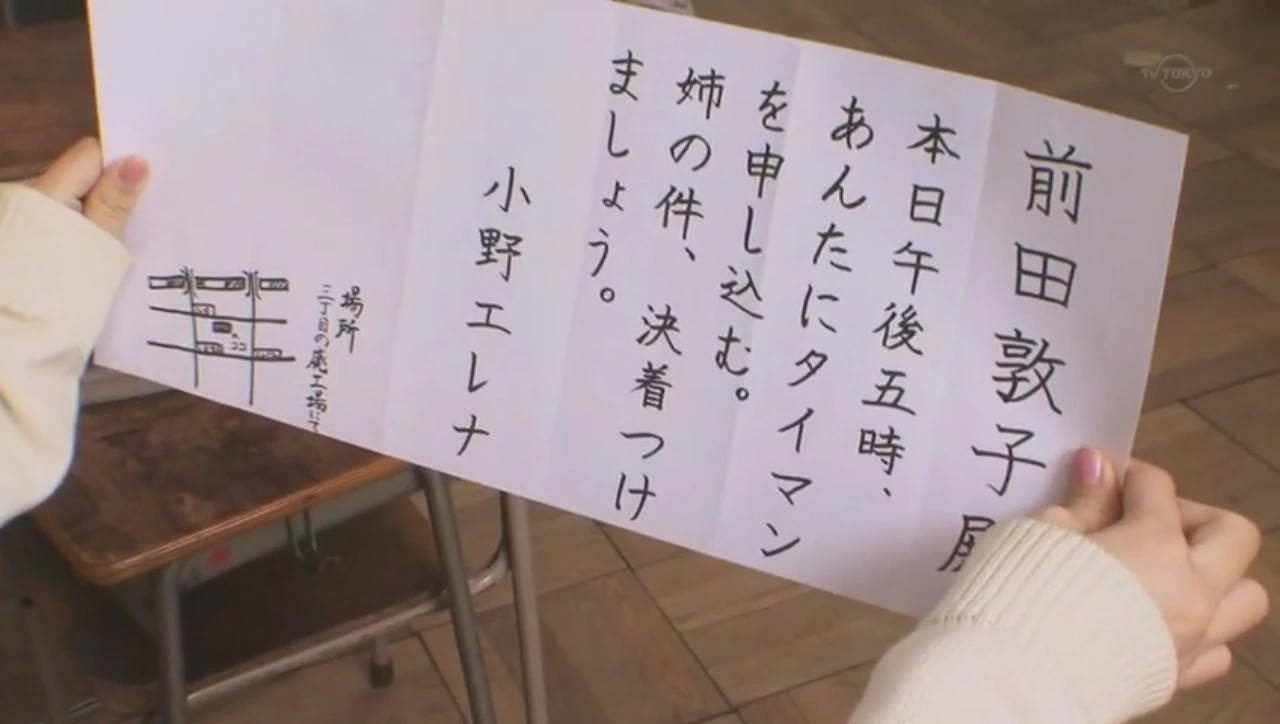 前田敦子殿
本日午後五時、
あんたにタイマン
を申し込む。
姉の件、決着つけ
ましょう。
小野エレナ
場所
三丁目の廃工場にて
ココ
TV TOKYO